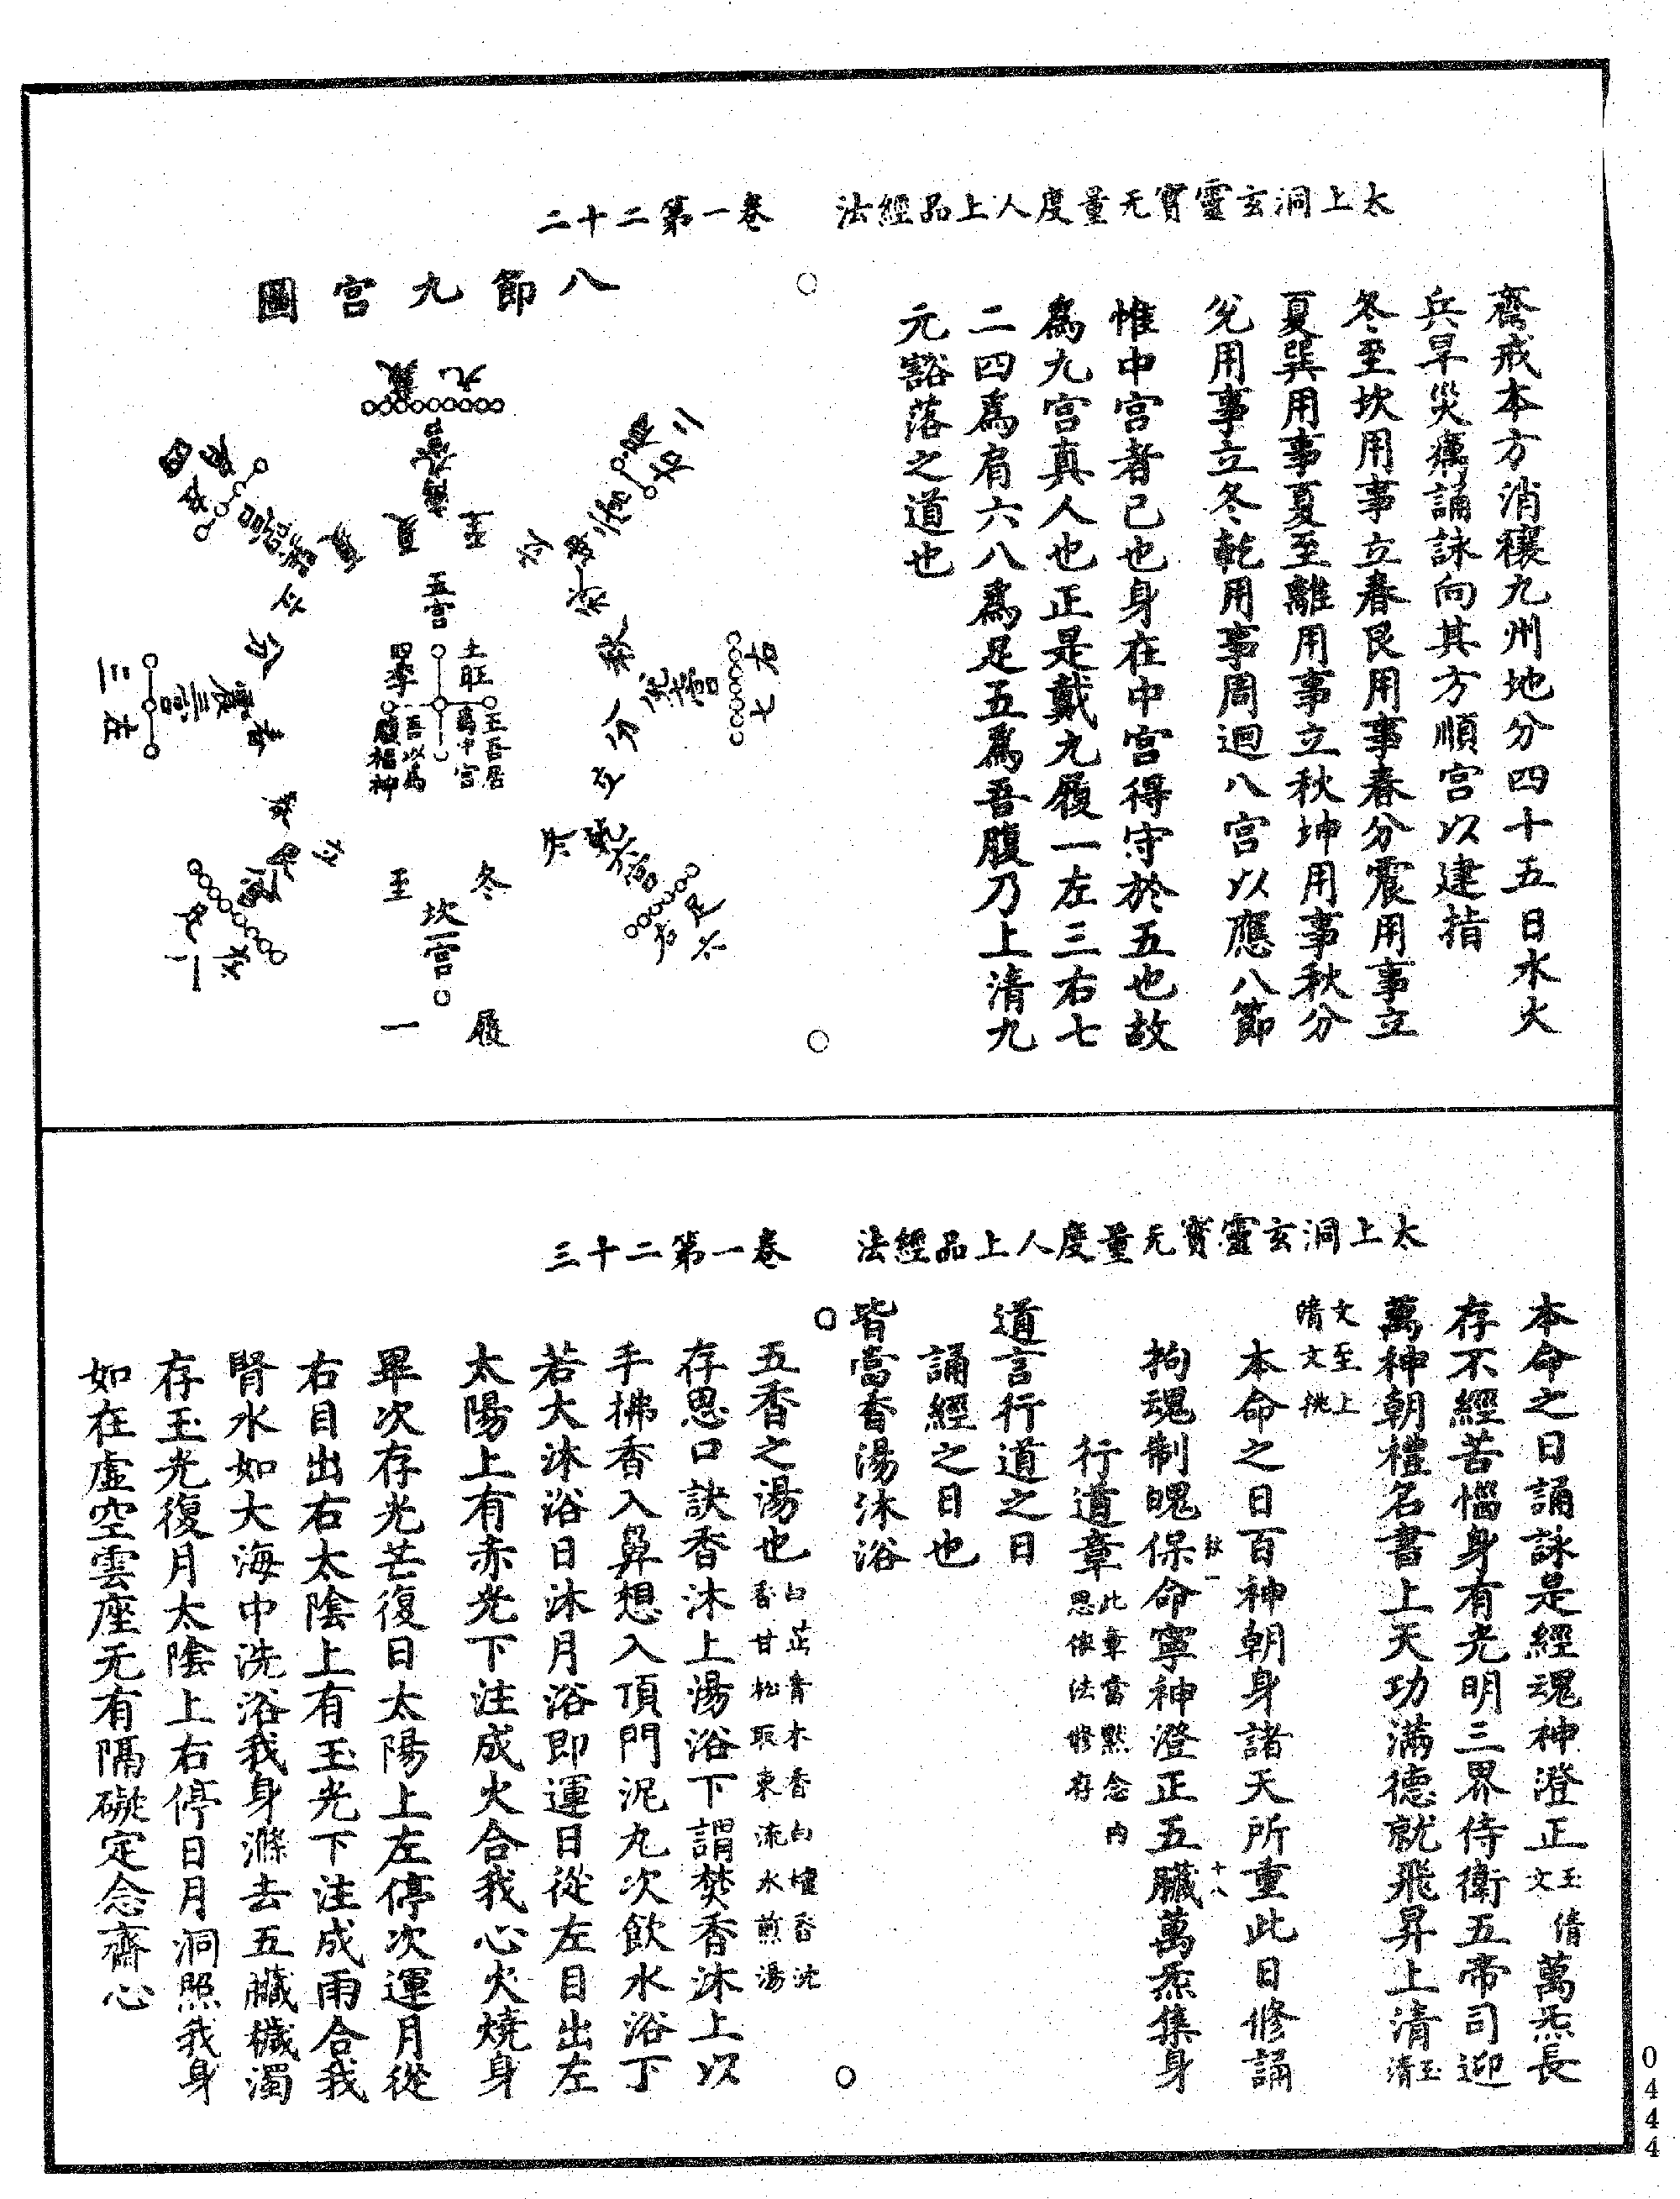 太上洞玄靈寶无量度人上品經法　卷一第二十二
齋戒本方消穰九州地分四十五日水火
兵旱災癘誦詠向其方順宫以建指
冬至坎用事立春艮用事春分震用事立
夏巽用事夏至離用事立秋坤用事秋分
兊用事立冬乾用事周迴八宫以應八節
惟中宫者己也身在中宫得守於五也故
爲九宫真人也正是戴九履一左三右七
二四爲肩六八爲足五爲吾腹乃上清九
元豁落之道也
八節九宫圖
九
夏至
五宫
土旺
四季
王吾居
爲中宫
吾以爲
腹福神
冬至
坎一宫
履一
太上洞玄靈寶无量度人上品經法　卷一第二十三
本命之日誦詠是經魂神澄正玉文倩萬炁長
存不經苦惱身有光明三界侍衛五帝司迎
萬神朝禮名書上天功滿德就飛昇上清玉清
文至上
倩文挑
本命之日百神朝身諸天所重此日修誦
拘魂制魄保命寧神澄正五臟萬炁集身
十八
行道章此章當默念内思依法修存
道言行道之日
誦經之日也
皆當香湯沐浴
五香之湯也白芷青木香白檀香沈香甘松取東流水煎湯
存思口訣香沐上湯浴下謂焚香沐上以
手拂香入鼻想入頂門泥九次飲水浴下
若大沐浴日沐月浴即運日從左目出左
太陽上有赤光下注成火合我心火燒身
畢次存光芒復日太陽上左停次運月從
右目出右太陰上有玉光下注成雨合我
腎水如大海中洗浴我身滌去五臟穢濁
存玉光復月太陰上右停日月洞照我身
如在虛空雲座无有隔礙定念齋心
0444